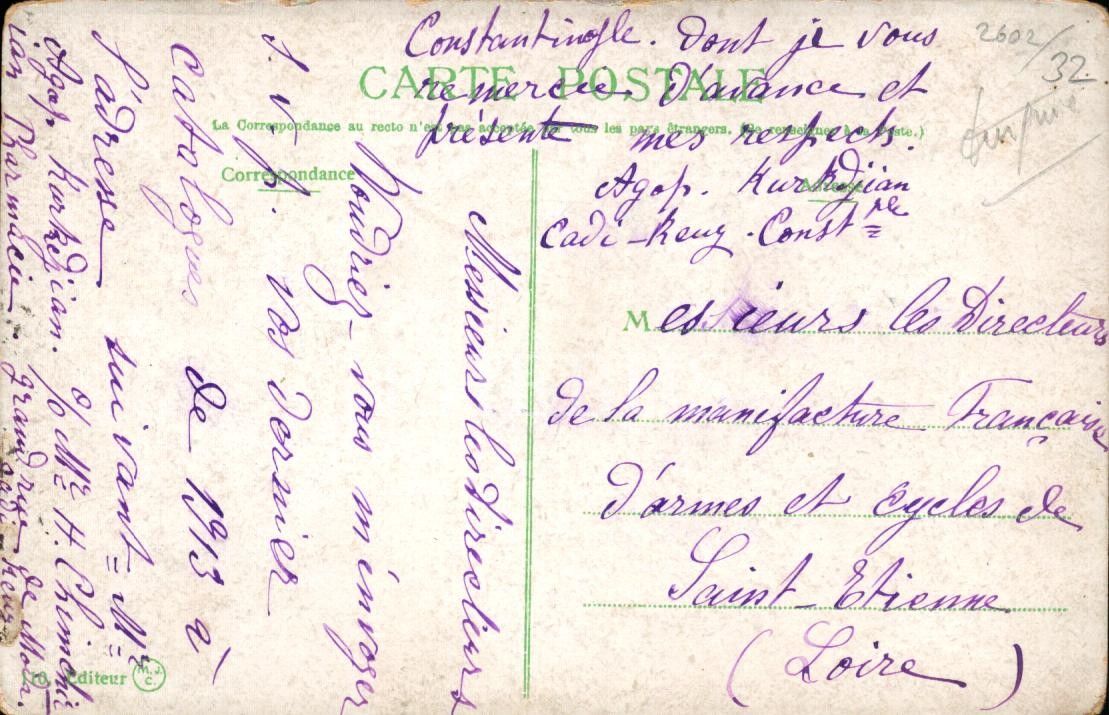 CARTE POSTALE
La Correspondance au recto n'est pas acceptée par tous les pays étrangers. (Se renseigner à la Poste.)
Correspondance
Messieurs les Directeurs
Voudriez-vous m'envoyer
s. v. p. vos dernier
Catalogues de 1913 à
l'adresse suivant = Mr =
Agop Kurkdjian. c/o Mr H. Chimchi
ian Pharmacien. grand rue de Moda.
Cadi Keuy
Constantinople. Dont je vous
remercie d'avance et
présente mes respects.
Agop. Kurkdjian
Cadi-Keuy. Constnle
Messieurs les Directeurs
de la manifacture Française
d'armes et cycles de
Saint-Etienne
(Loire)
2602/32
110 Editeur M.J.C.